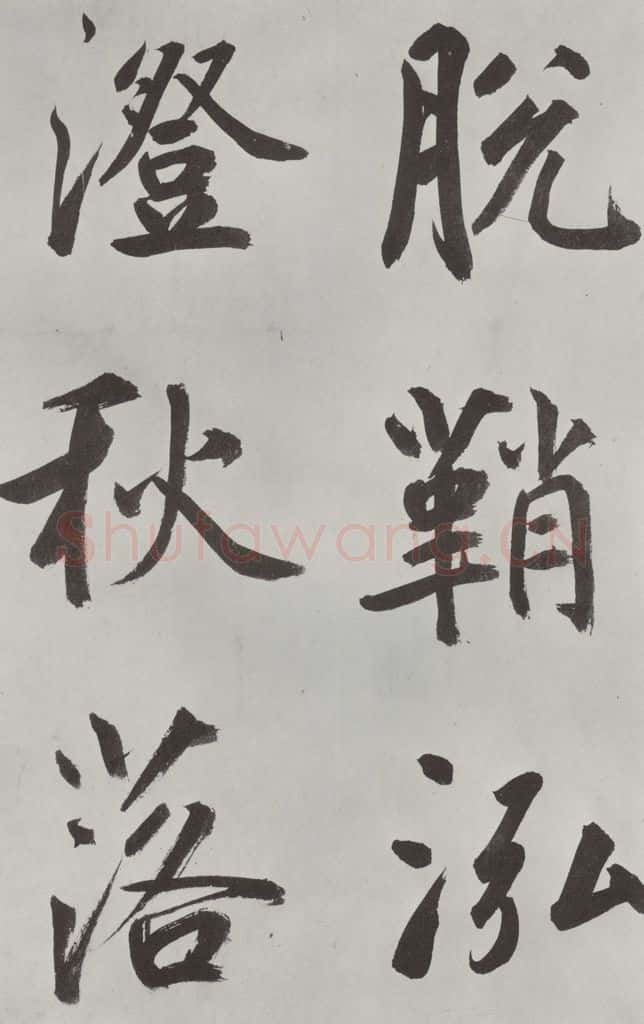 脱鞘泓
澄秋落
Shufawang.CN